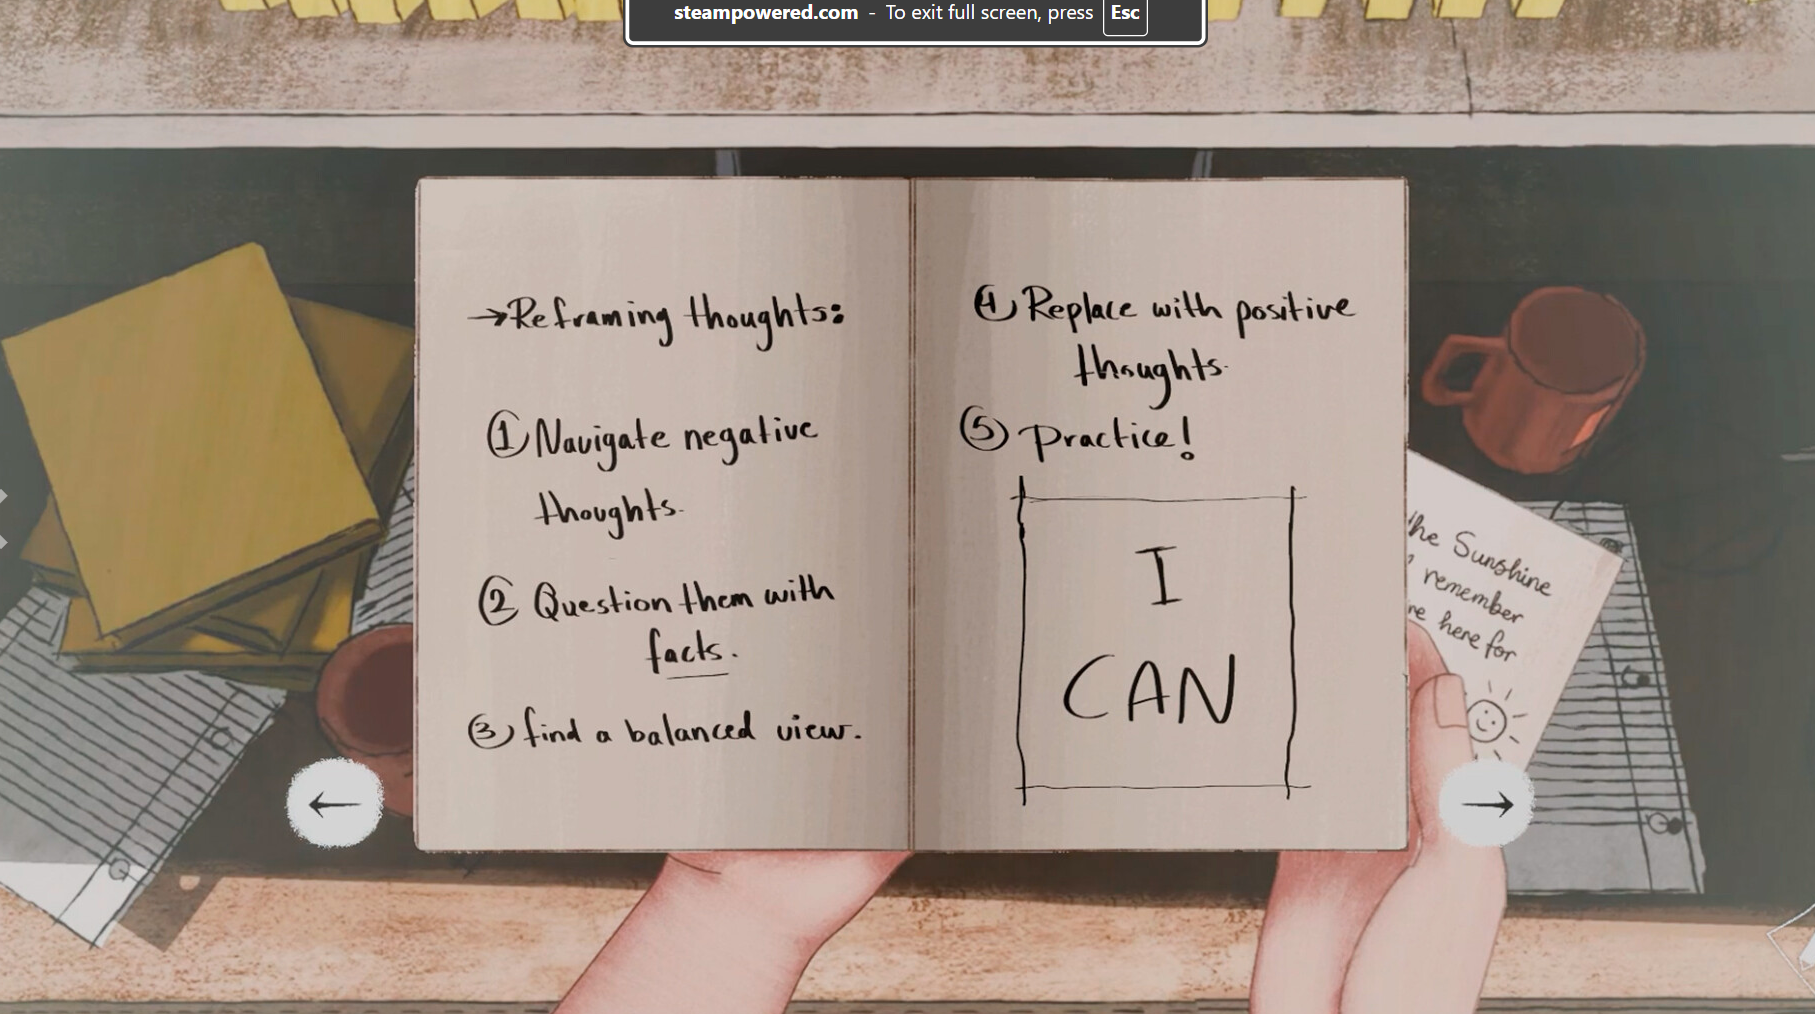 steampowered.com - To exit full screen, press Esc
→Reframing thoughts:
① Navigate negative
thoughts.
② Question them with
facts.
③ find a balanced view.
④ Replace with positive
thoughts.
⑤ Practice!
I
CAN
the Sunshine
remember
here for